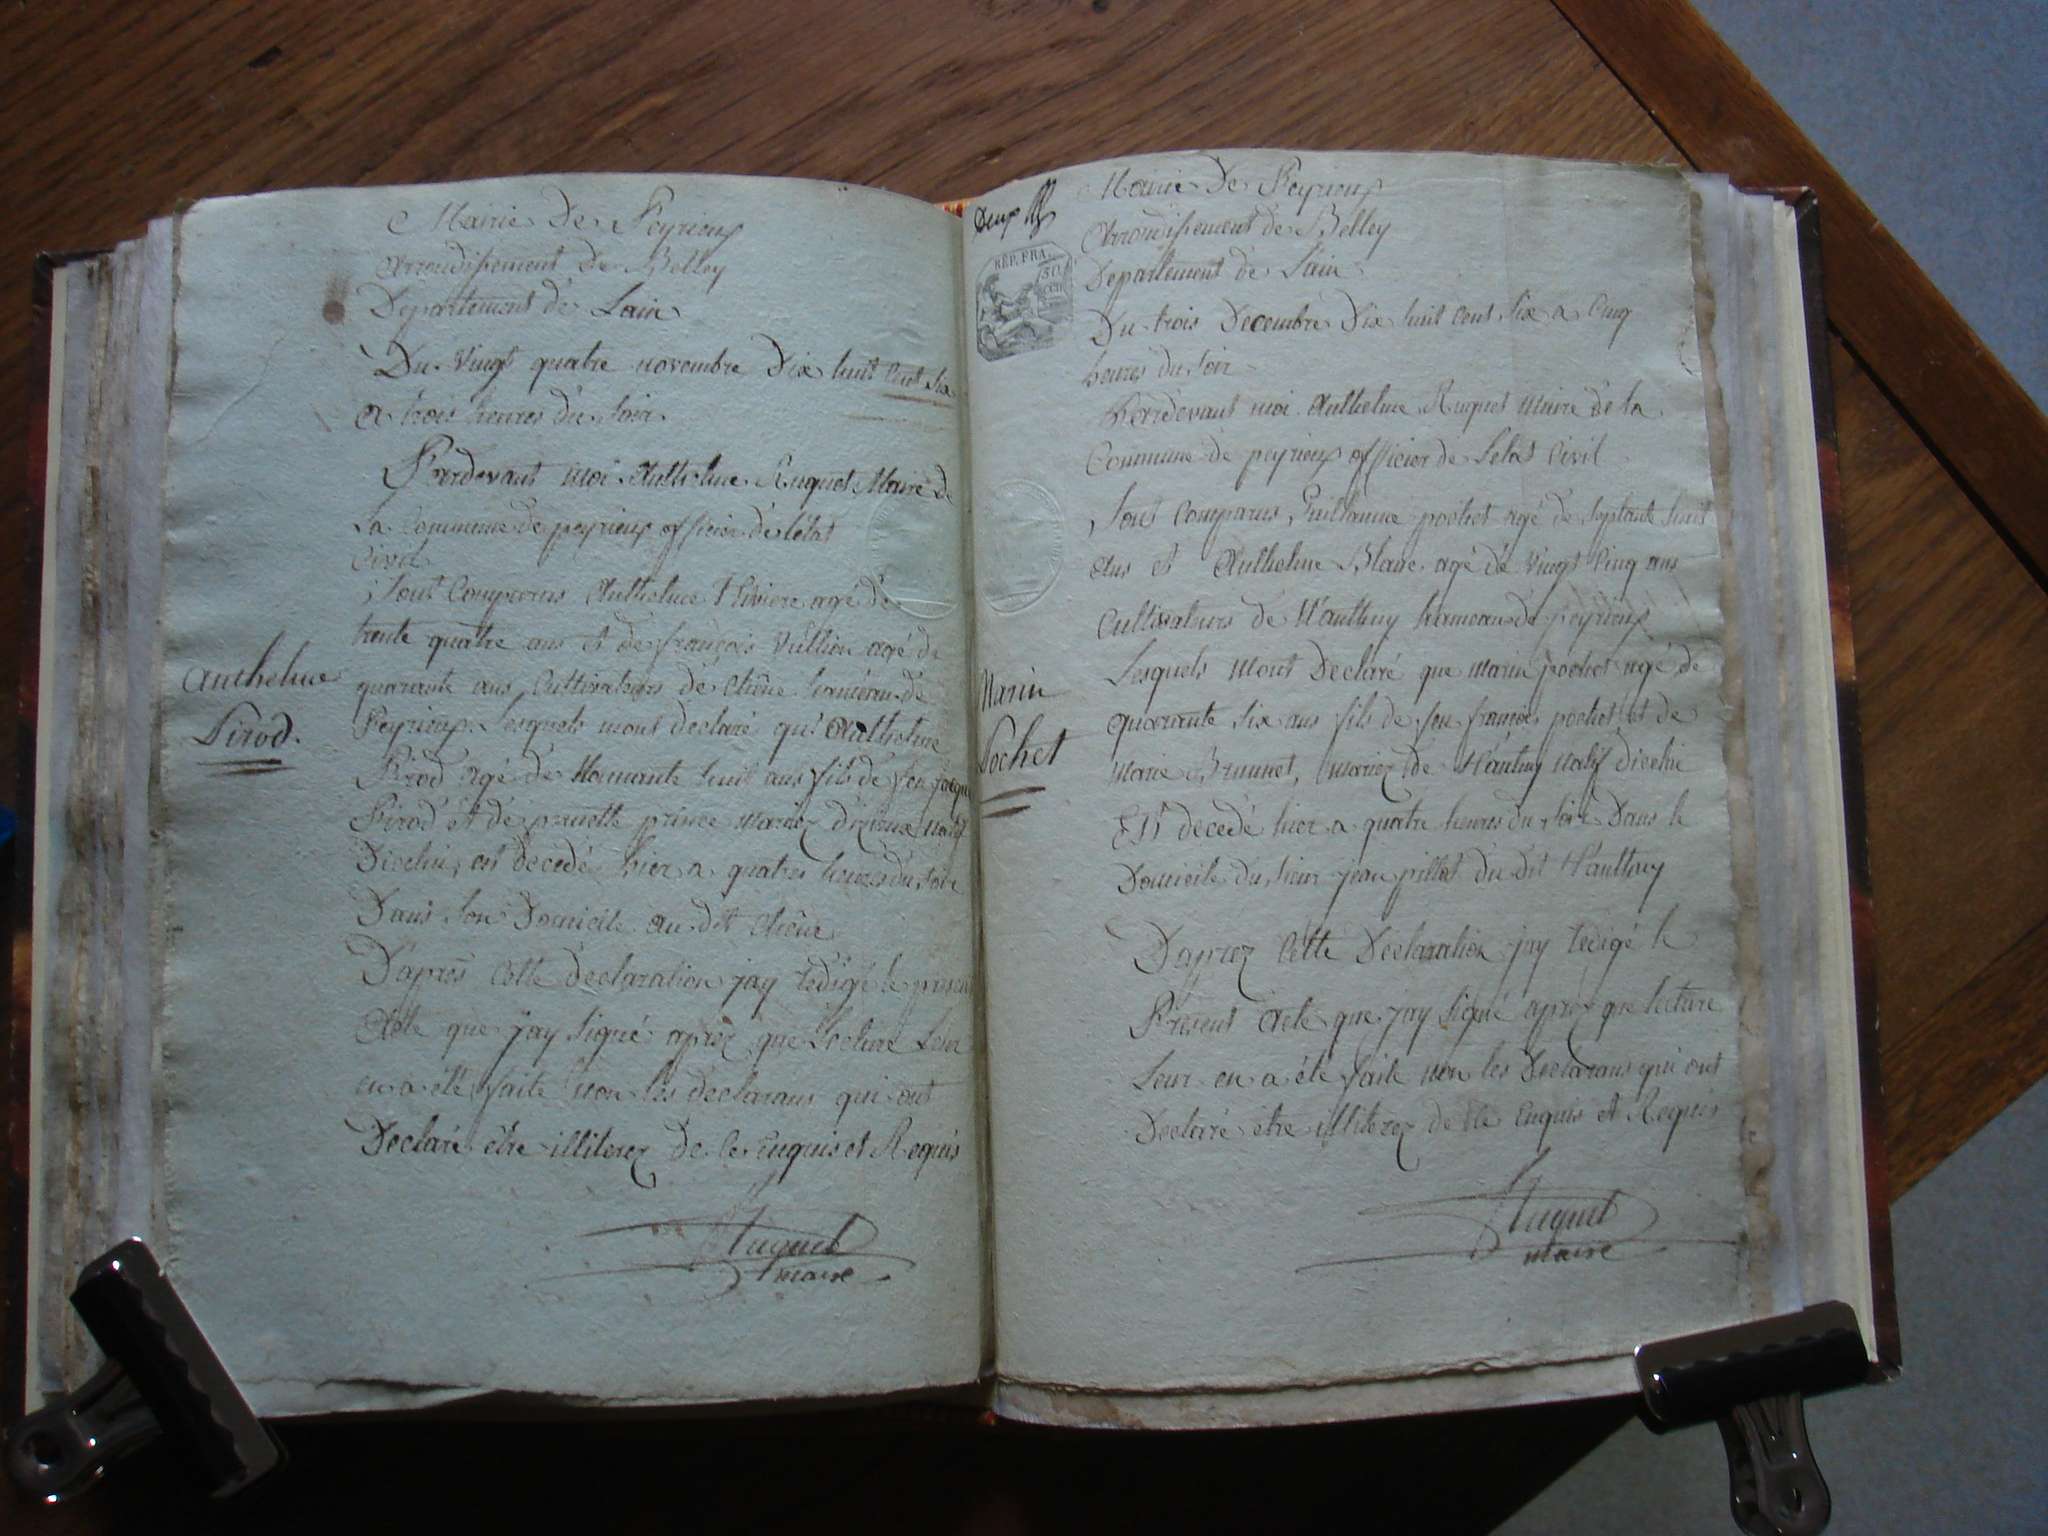 Mairie De Peyrieux
Arrondissement de Belley
Departement de Lain
Du vingt quatre novembre Dix huit Cent Six
a trois heures du soir
Pardevant moi Anthelme Ruquet Maire de
la Commune de peyrieux officier de létat
Civil
Sont Comparus Anthelme Riviere agé de
trente quatre ans et de françois Vullion agé de
quarante ans, Cultivateurs de Chêne hameau de
Peyrieux, Lesquels mont declaré qu'Anthelme
Pirod agé de Nonante huit ans fils de feu
Pirod et de prince
Dicelui, est decedé hier a quatres heures du soir
Dans son Domicile au dit Chêne
D'après Cette declaration jay redigé le present
Acte que jay signé aprez que Lecture Leur
en a été faite non les declarans qui ont
Declaré être illiterez de Ce Enquis et Requis
Ruquet
maire
Anthelme
Pirod.
Deux
RÉP. FRA.
50
CEN
Mairie De Peyrieux
Arrondissement de Belley
Departement de Lain
Du trois Decembre Dix huit Cent Six a Cinq
heures du soir
Pardevant moi Anthelme Ruquet Maire de la
Commune de peyrieux officier de Letat Civil
Sont Comparus Guillaume pochet agé de septante huit
ans et Anthelme Blanc agé de vingt Cinq ans
Cultivateurs de hameau de Peyrieux
Lesquels Mont Declaré que Marin pochet agé de
quarante six ans fils de feu françois pochet et de
Marie Brunnet, mariez de natif dicelui
Est decedé hier a quatre heures du soir Dans le
Domicile du sieur jean pillet du dit
D'aprez Cette Declaration jay redigé le
Present Acte que jay signé aprez que lecture
Leur en a été faite non les Declarans qui ont
Declaré être illiterez de Ce Enquis et Requis
Ruquet
maire
Marin
Pochet